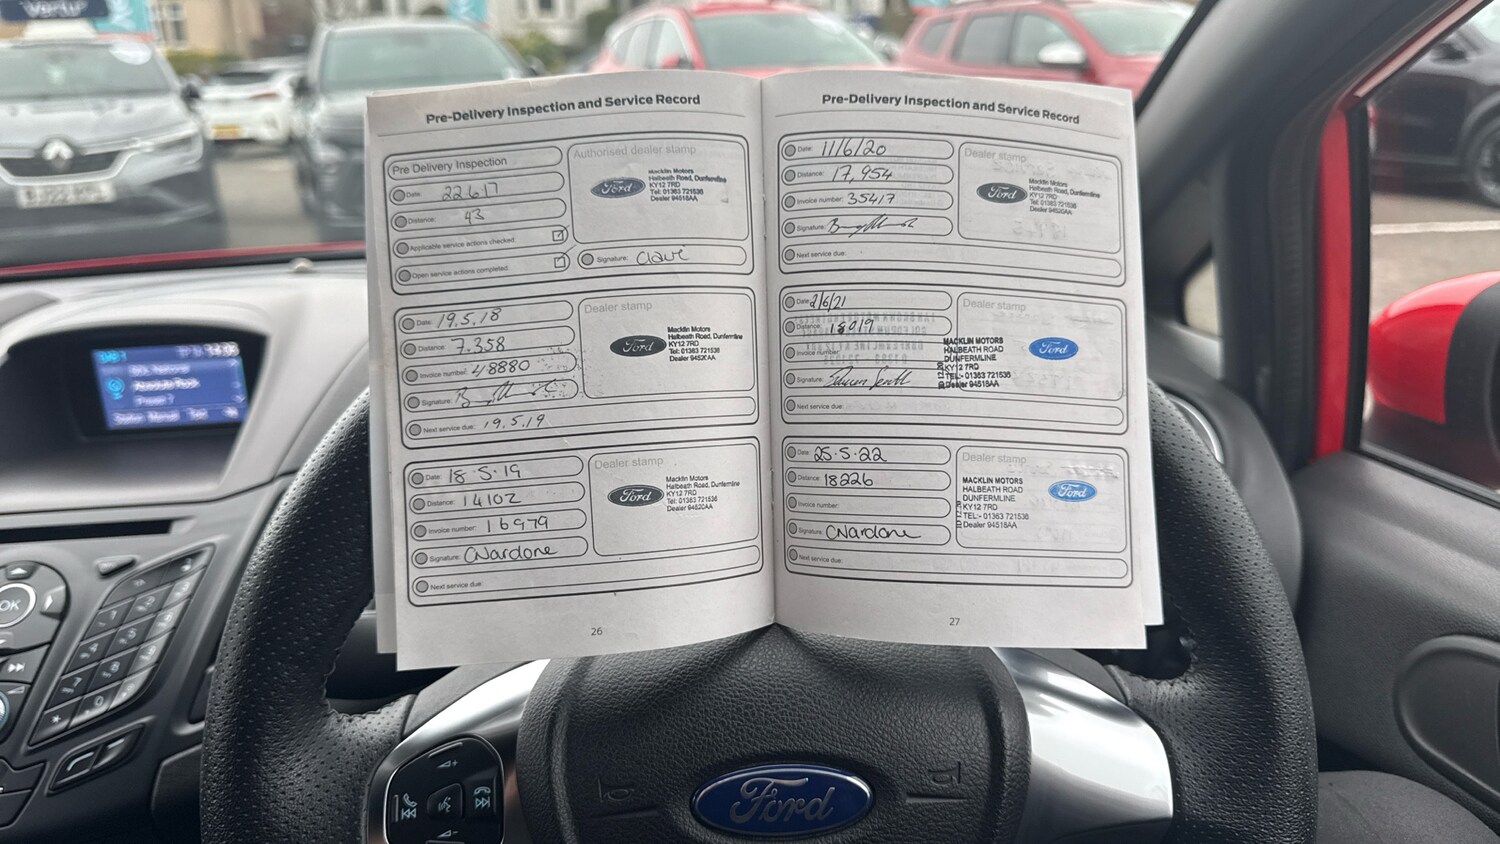 Vertu
Pre-Delivery Inspection and Service Record
Pre Delivery Inspection
Date: 22.6.17
Distance: 43
Applicable service actions checked:
Open service actions completed:
Authorised dealer stamp
Ford
Macklin Motors
Halbeath Road, Dunfermline
KY12 7RD
Tel: 01383 721536
Dealer 94518AA
Signature:
Date: 19.5.18
Distance: 7.358
Invoice number: 48880
Signature:
Next service due: 19.5.19
Dealer stamp
Ford
Macklin Motors
Halbeath Road, Dunfermline
KY12 7RD
Tel: 01383 721536
Dealer 94520AA
Date: 18-5-19
Distance: 14102
Invoice number: 16979
Signature: CNardone
Next service due:
Dealer stamp
Ford
Macklin Motors
Halbeath Road, Dunfermline
KY12 7RD
Tel: 01383 721536
Dealer 94520AA
26
Pre-Delivery Inspection and Service Record
Date: 11/6/20
Distance: 17,954
Invoice number: 35417
Signature:
Next service due:
Dealer stamp
Ford
Macklin Motors
Halbeath Road, Dunfermline
KY12 7RD
Tel: 01383 721536
Dealer 94520AA
Date: 2/6/21
Distance: 18019
Invoice number:
Signature:
Next service due:
Dealer stamp
MACKLIN MOTORS
HALBEATH ROAD
DUNFERMLINE
KY12 7RD
TEL:- 01383 721536
Dealer 94518AA
Ford
Date: 25.5.22
Distance: 18226
Invoice number:
Signature: CNardone
Next service due:
Dealer stamp
MACKLIN MOTORS
HALBEATH ROAD
DUNFERMLINE
KY12 7RD
TEL:- 01383 721536
Dealer 94518AA
Ford
27
OK
Ford